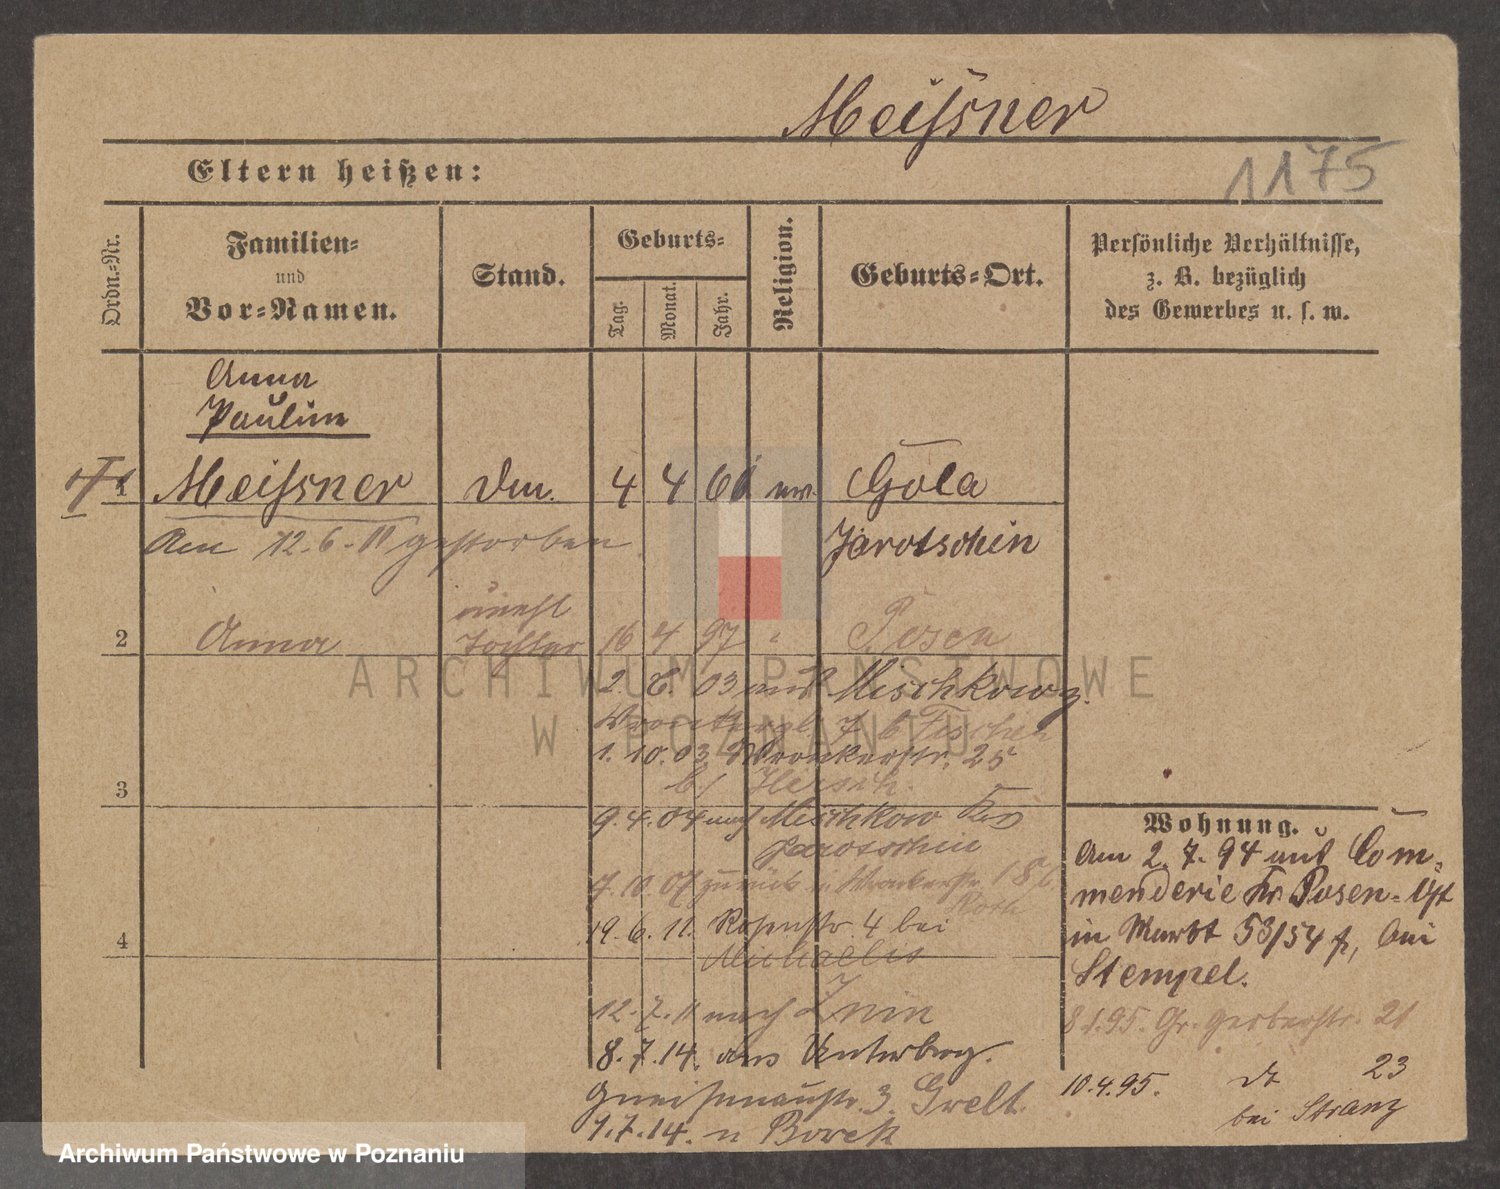 Meissner
1175
Eltern heißen:
Ordn.=Nr.
Familien=
und
Vor=Namen.
Stand.
Geburts=
Tag.
Monat.
Jahr.
Religion.
Geburts=Ort.
Persönliche Verhältnisse,
z. B. bezüglich
des Gewerbes u. s. w.
Anna
Pauline
1 Meissner 4 4 Gola
Am 12.6.11 gestorben
Jarotschin
unehl
2 Anna Tochter 16 4 97 " Posen
ARCHIWUM PAŃSTWOWE
W POZNANIU
03 Mischkow
b Fischer
1.10.03 Wronkerstr. 25
3 b/ Hirsch.
9.4.04 nach Mischkow Krs
Jarotschin
7.10.07 zurück Wronkerstr.
Roth
19.6.11. Rosenstr 4 bei
4 Michaelis
12.7.11 nach Znin
8.7.14. aus Unterberg.
Gneisenaustr. 3
1.7.14. n Borek
Wohnung.
Am 2.7.94 aus Com=
menderie Kr. Posen=Ost
in Markt 53/54 bei
Stempel.
8.1.95. Gr. Gerberstr. 21
10.4.95. do 23
bei Stranz
Archiwum Państwowe w Poznaniu